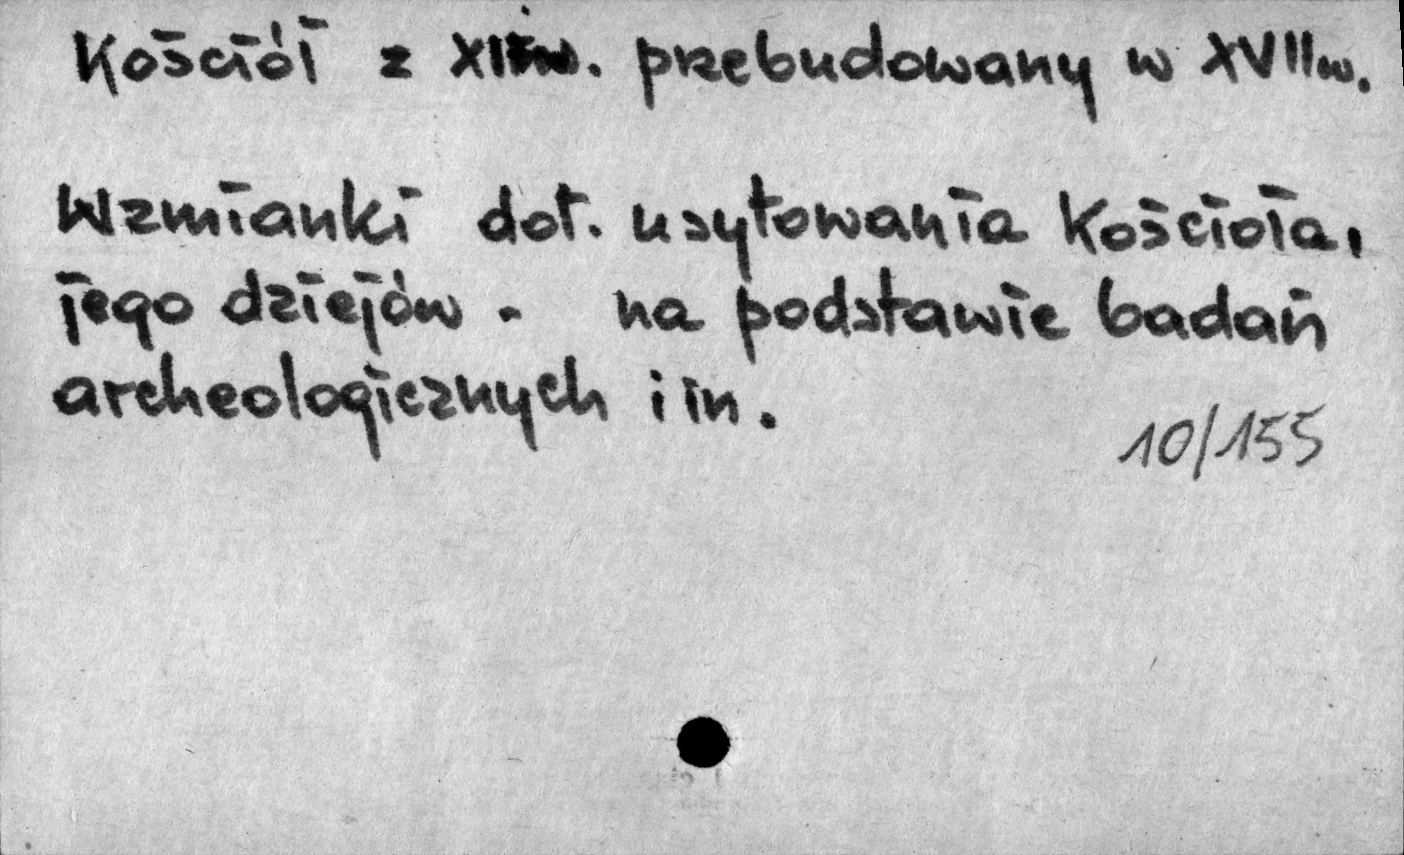 Kościół z XIIw. przebudowany w XVIIw.
Wzmianki dot. usytowania Kościoła,
jego dziejów - na podstawie badań
archeologicznych i in.
10/155